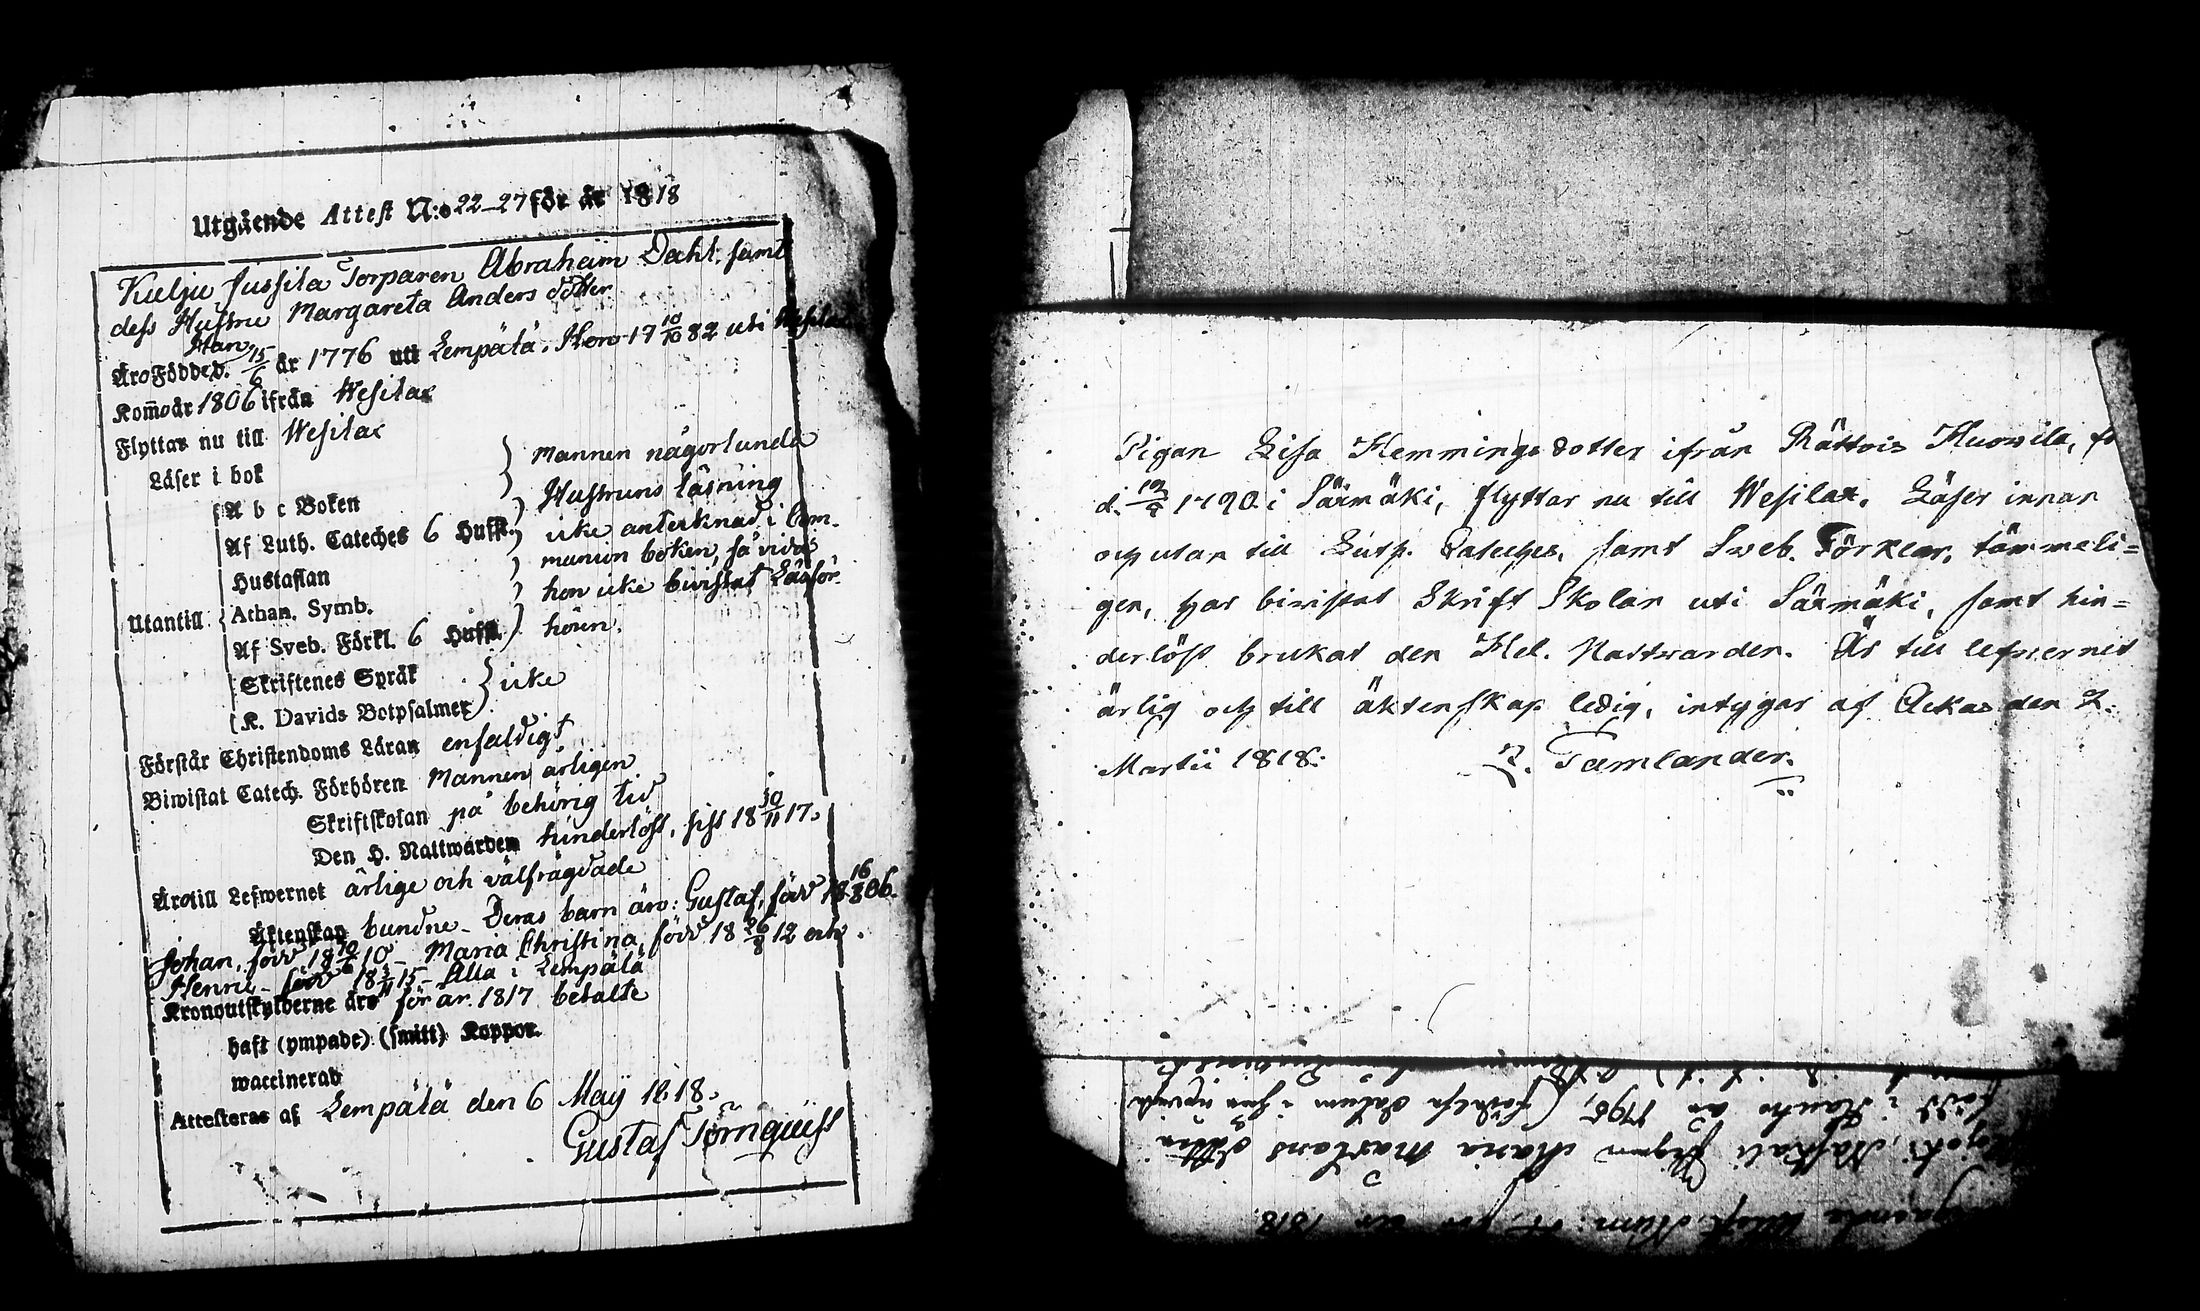 Utgående Attest N:o 22-27 för år 1818
Kulju Jussila Torparen Abraham Dahl. samt
dess Hustru Margareta Anders dotter
Han
Äro Född d. 15/6 år 1776 uti Lempälä. Hon 17 10/10 82 uti Wesilax
Kom̄o år 1806 ifrån Wesilax
Flyttar nu till Wesilax
Läser i bok } Mannen någorlunda
A b c Boken } Hustruns läsning
Af Luth. Cateches 6 Hufst. } icke anteknad i Com-
Hustaflan } munion boken, så vida
Utantill Athan. Symb. } hon icke bivistat Läsför-
Af Sveb. Förkl. 6 Hufst. } hören.
Skriftenes Språk } icke
K. Davids Botpsalmer }
Förstår Christendoms Läran enfaldigt
Biwistat Catech. Förhören Mannen årligen
Skriftskolan på behörig tid
Den H. Nattwarden hinderlöst, sist 18 30/11 17.
Äro till Lefwernet ärlige och välfrägdade
Äktenskap bundne - Deras barn äro: Gustaf, född 18 16/8 06.
Johan, född 18 10 - Maria Christina, född 18 26/8 12 och
Henric - född 18 15 - Alla i Lempälä
Kronoutskylderne äro för år 1817 betalte
haft (ympade) (smitt) Koppor.
waccinerad
Attesteras af Lempälä den 6 Maij 1818.
Gustaf Törnquist
Pigan Lisa Hemmings dotter ifrån Rättois
d. 1790 i Säxmäki, flyttar nu till Wesilax. Läser innan
och utan till Luth. Cateches. samt Sveb. Förklar. tämmeli=
gen, har bivistat Skrift Skolan uti Säxmäki, samt hin=
derlöst brukat den Hel. Nattvarden. Är till lefvernet
ärlig och till äktenskap ledig, intygar af Ackas den 2.
Martii 1818. Tamlander.
Attest Num: för år 1818.
Pigan Maria Mårtens dotter
född i år 1795, (födelse datum i